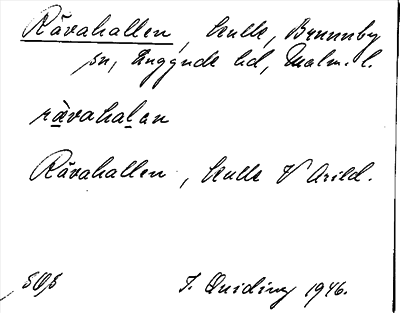 Rävahallen, kulle, Brunnby
sn, Luggude hd, Malm. l.
rävahalan
Rävahallen, kulle V Arild.
50,5 J. Quiding 1946.